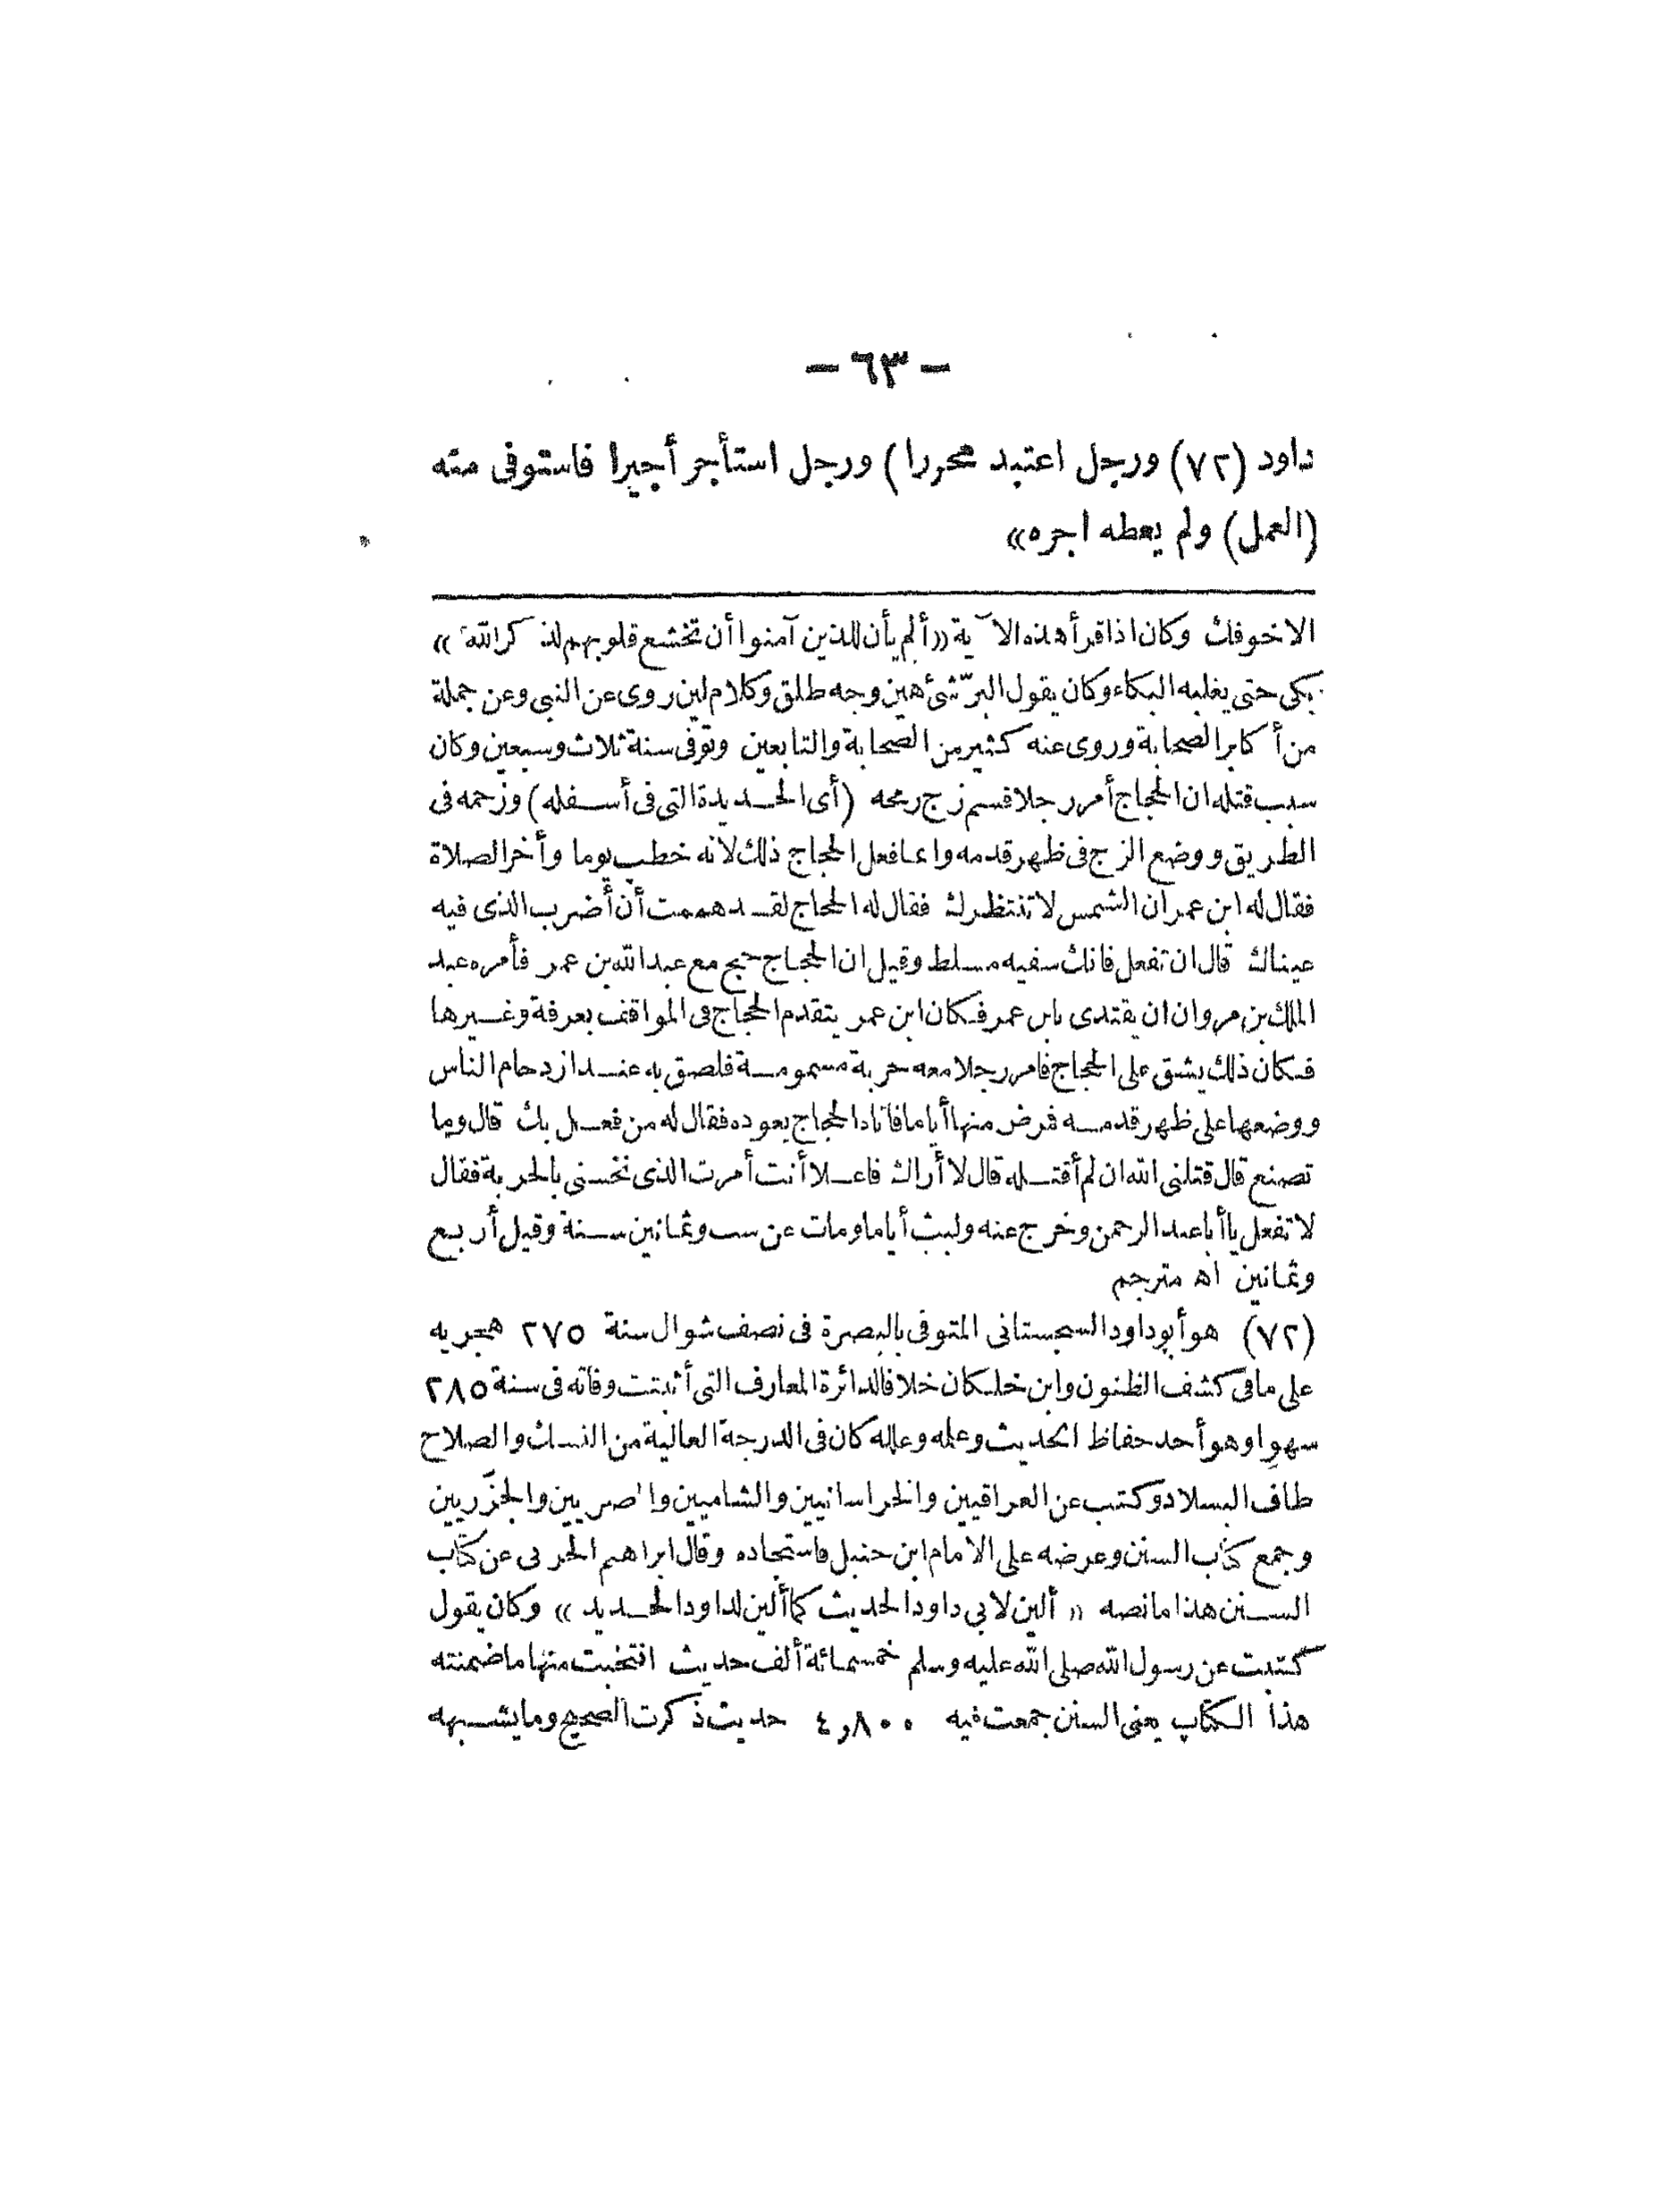 — ٦٣ —
داود (٧٢) ورجل اعتبد محررا) ورجل استأجر أجيرا فاستوفى منه
(العمل) ولم يعطه اجره»
الاخوفك وكان اذا قرأ هذه الآية «ألم يأن للذين آمنوا أن تخشع قلوبهم لذكر الله»
بكى حتى يغلبه البكاء وكان يقول البرّ شئ هين وجه طلق وكلام لين روى عن النبى وعن جملة
من أكابر الصحابة وروى عنه كثير من الصحابة والتابعين وتوفى سنة ثلاث وسبعين وكان
سبب قتله ان الحجاج أمر رجلا فسم زج رمحه (أى الحديدة التى فى أسفله) وزحمه فى
الطريق ووضع الزج فى ظهر قدمه وانما فعل الحجاج ذلك لانه خطب يوما وأخر الصلاة
فقال له ابن عمر ان الشمس لا تنتظرك فقال له الحجاج لقد هممت أن أضرب الذى فيه
عيناك قال ان تفعل فانك سفيه مسلط وقيل ان الحجاج حج مع عبد الله بن عمر فأمره عبد
الملك بن مروان ان يقتدى بابن عمر فكان ابن عمر يتقدم الحجاج فى المواقف بعرفة وغيرها
فكان ذلك يشق على الحجاج فامر رجلا معه حربة مسمومة فلصق به عند ازدحام الناس
ووضعها على ظهر قدمه فمرض منها أياما فاتاه الحجاج يعوده فقال له من فعل بك قال وما
تصنع قال قتلنى الله ان لم أقتله قال لا أراك فاعلا أنت أمرت الذى نخسنى بالحربة فقال
لا تفعل يا أبا عبد الرحمن وخرج عنه ولبث أياما ومات عن ست وثمانين سنة وقيل أربع
وثمانين اه مترجم
(٧٢) هو أبو داود السجستانى المتوفى بالبصرة فى نصف شوال سنة ٢٧٥ هجريه
على ما فى كشف الظنون وابن خلكان خلافا لدائرة المعارف التى أثبتت وفاته فى سنة ٢٨٥
سهوا وهو أحد حفاظ الحديث وعلمه وعلله كان فى الدرجة العالية من النسك والصلاح
طاف البلاد وكتب عن العراقيين والخراسانيين والشاميين والمصريين والجزريين
وجمع كتاب السنن وعرضه على الامام ابن حنبل فاستجاده وقال ابراهيم الحربى عن كتاب
السنن هذا ما نصه «ألين لابي داود الحديث كما ألين لداود الحديد» وكان يقول
كتبت عن رسول الله صلى الله عليه وسلم خمسمائة ألف حديث انتخبت منها ما ضمنته
هذا الكتاب يعنى السنن جمعت فيه ٤٫٨٠٠ حديث ذكرت الصحيح وما يشبهه